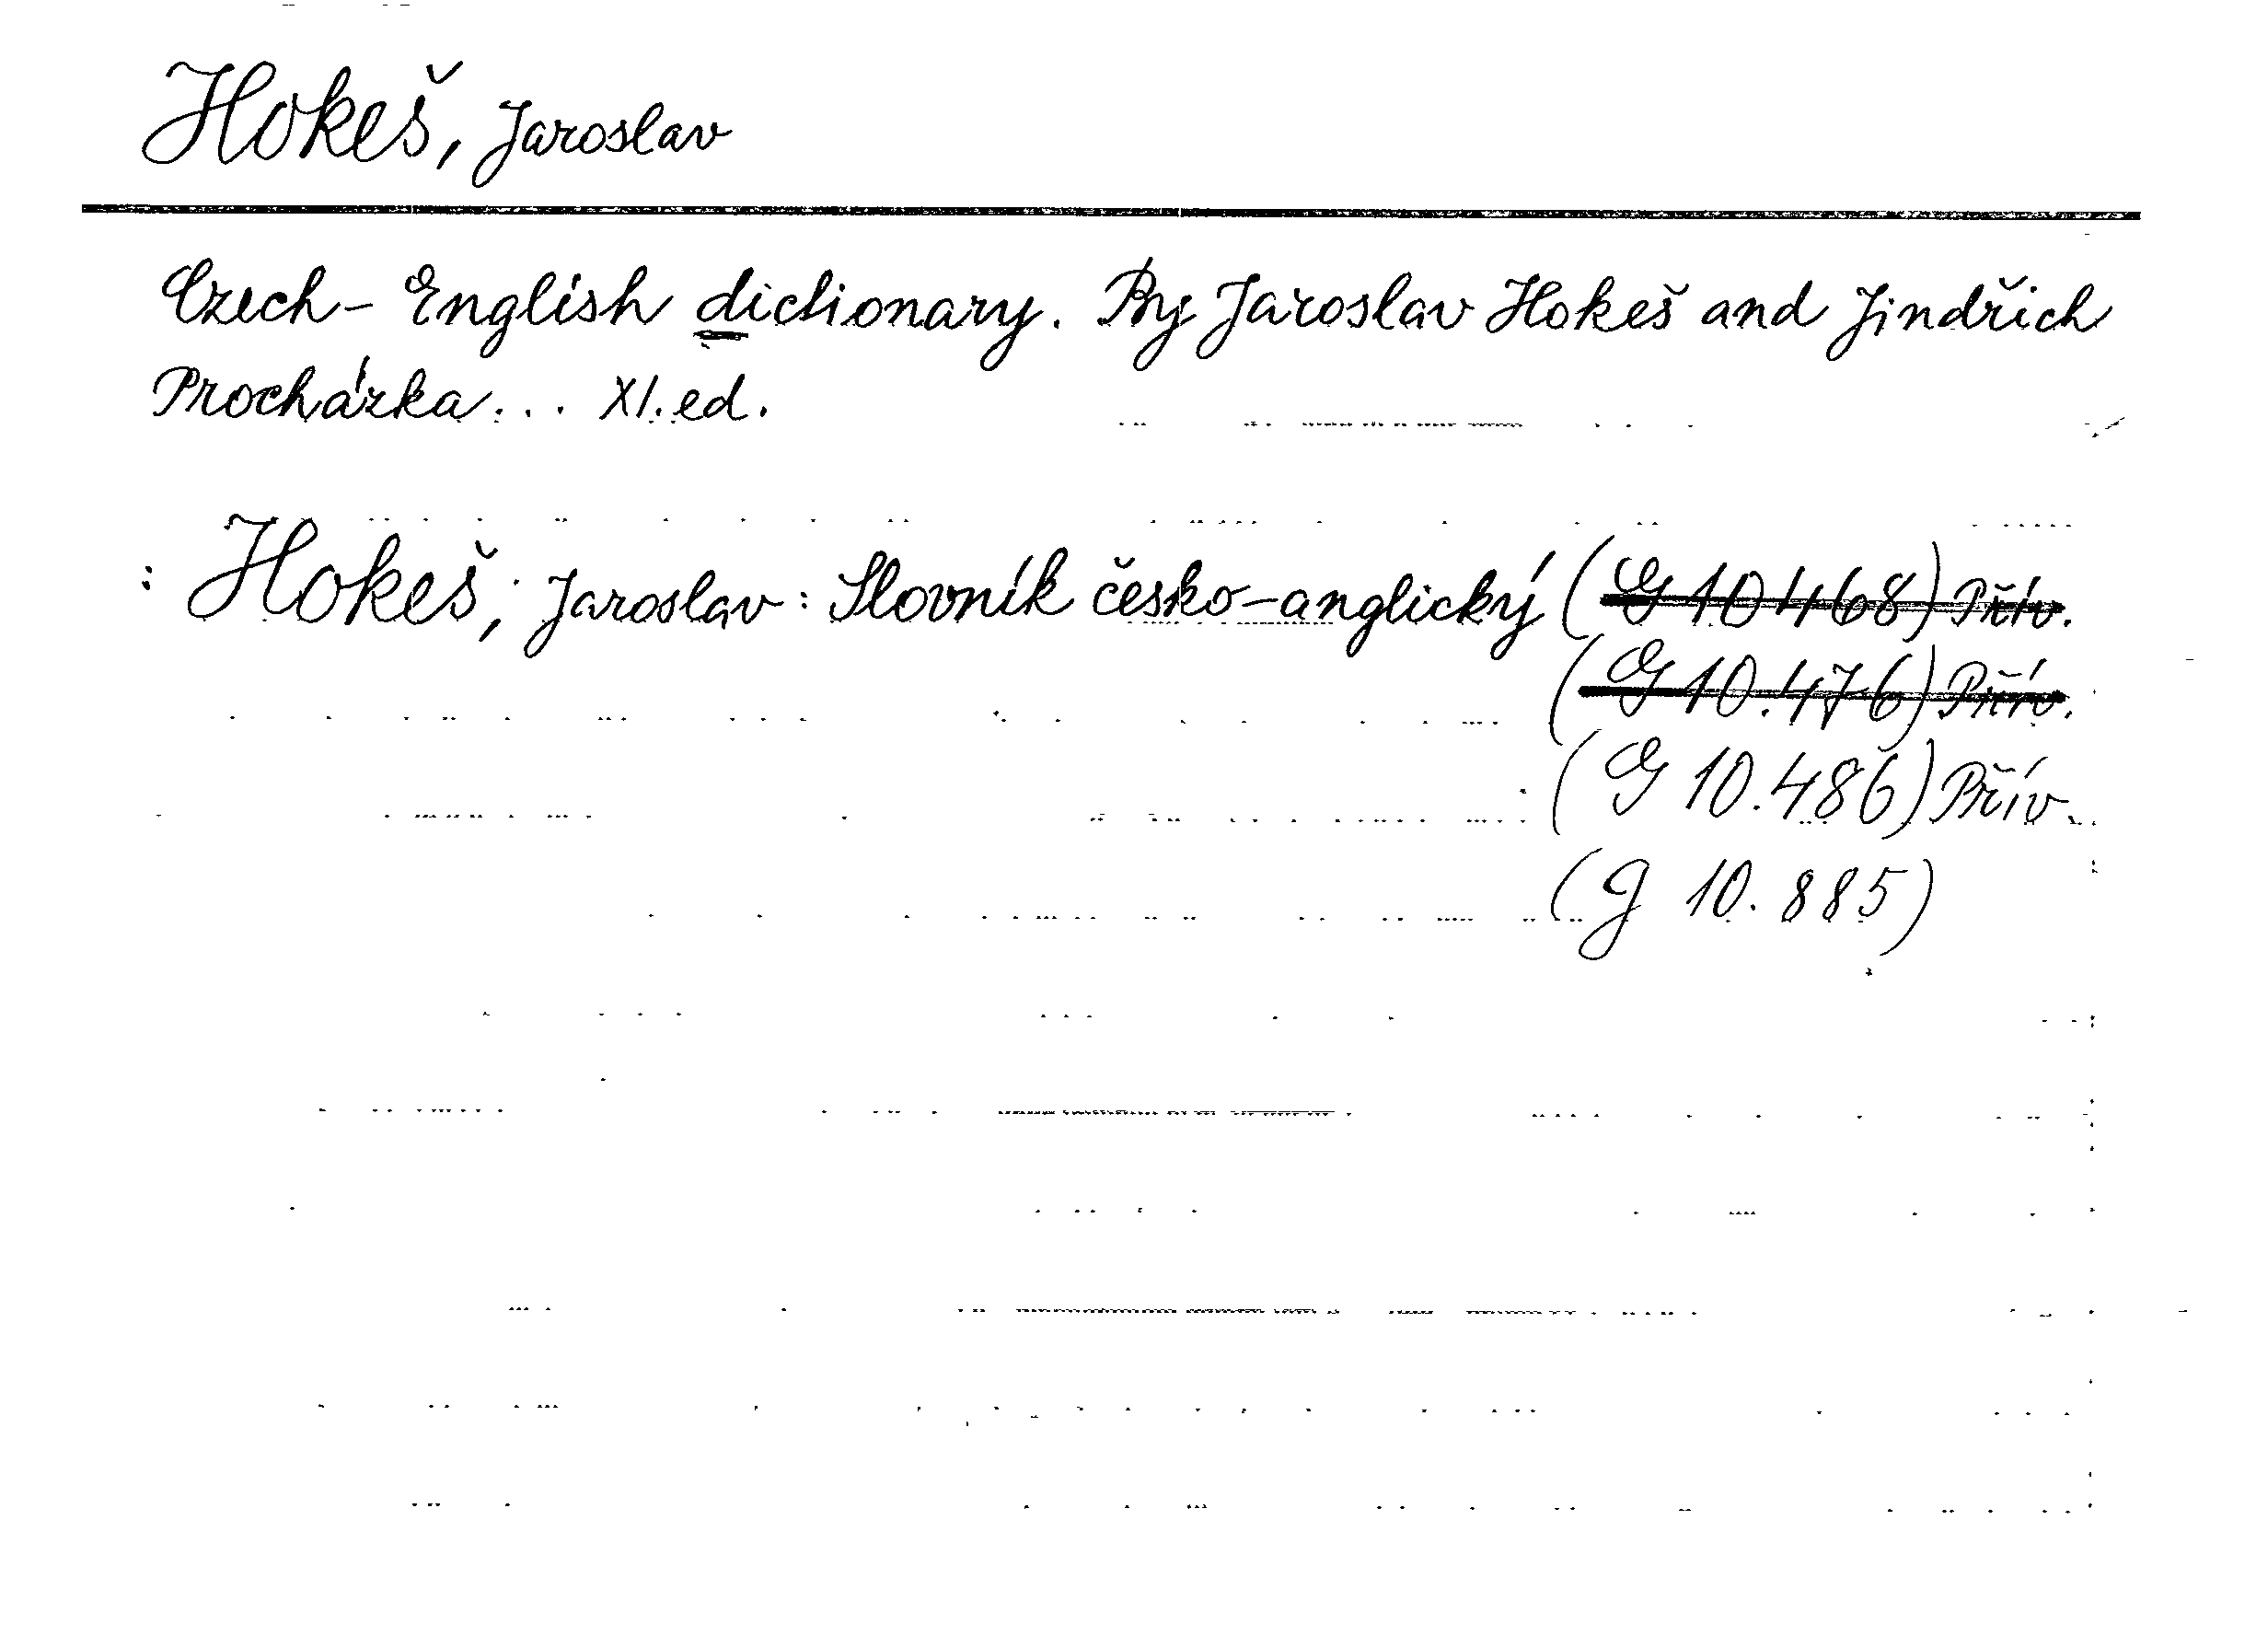 Hokeš, Jaroslav
Czech-English dictionary. By Jaroslav Hokeš and Jindřich
Procházka... XI. ed.
: Hokeš, Jaroslav: Slovník česko-anglický (G 10468) Přív.
(G 10.476) Přív.
(G 10.486) Přív.
(G 10.885)